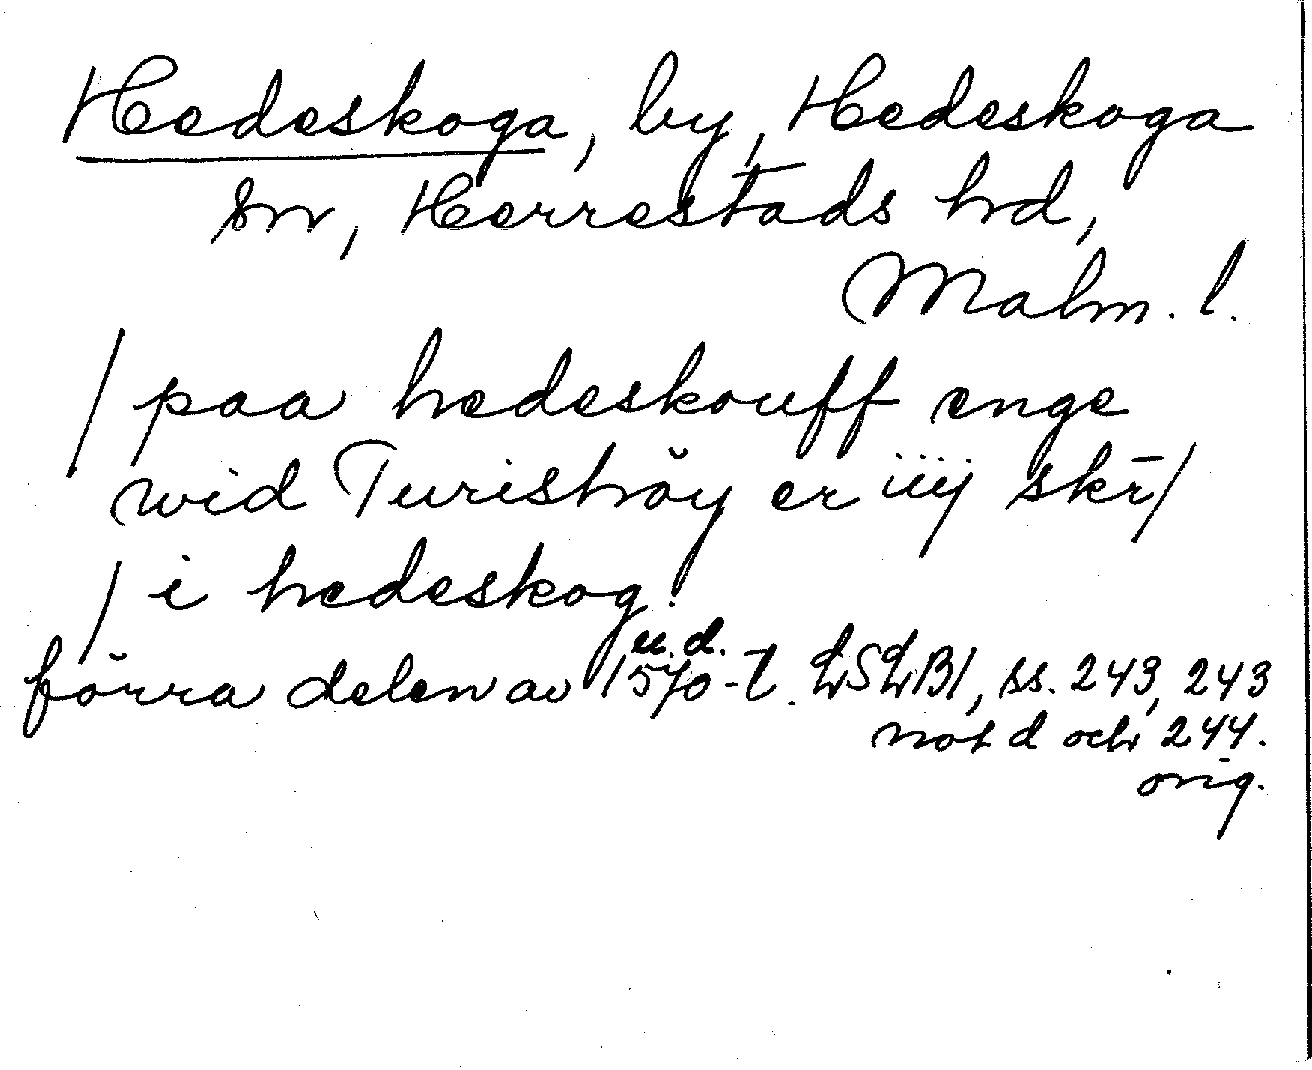 Hedeskoga, by, Hedeskoga
sn, Herrestads hd,
Malm. l.
/ paa hedeskouff enge
wid Turishöy er iiij skr̄ /
/ i hedeskog.
u. d.
förra delen av 1570-t. LSLB1, ss. 243, 243
not d och 244.
orig.